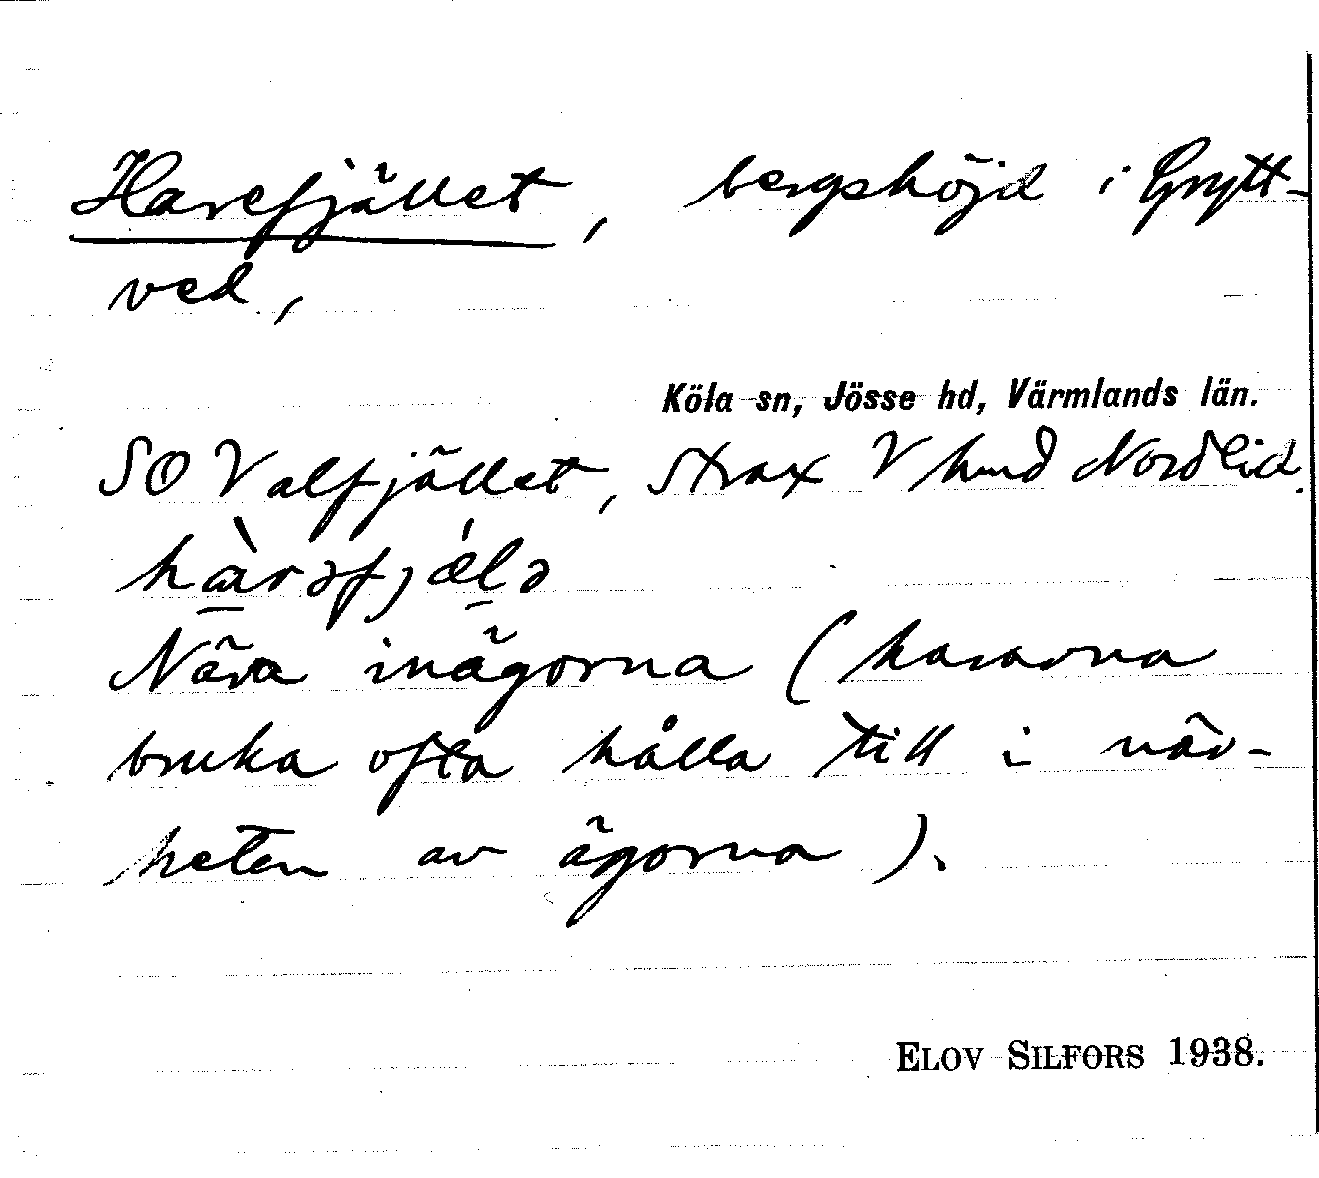 Harefjället, bergshöjd i Grytt-
ved,
Köla sn, Jösse hd, Värmlands län.
SO Valfjället, strax V hmd Nordlid.
hàrəfjǽlə
Nära inägorna (hararna
bruka ofta hålla till i när-
heten av ägorna).
ELOV SILFORS 1938.